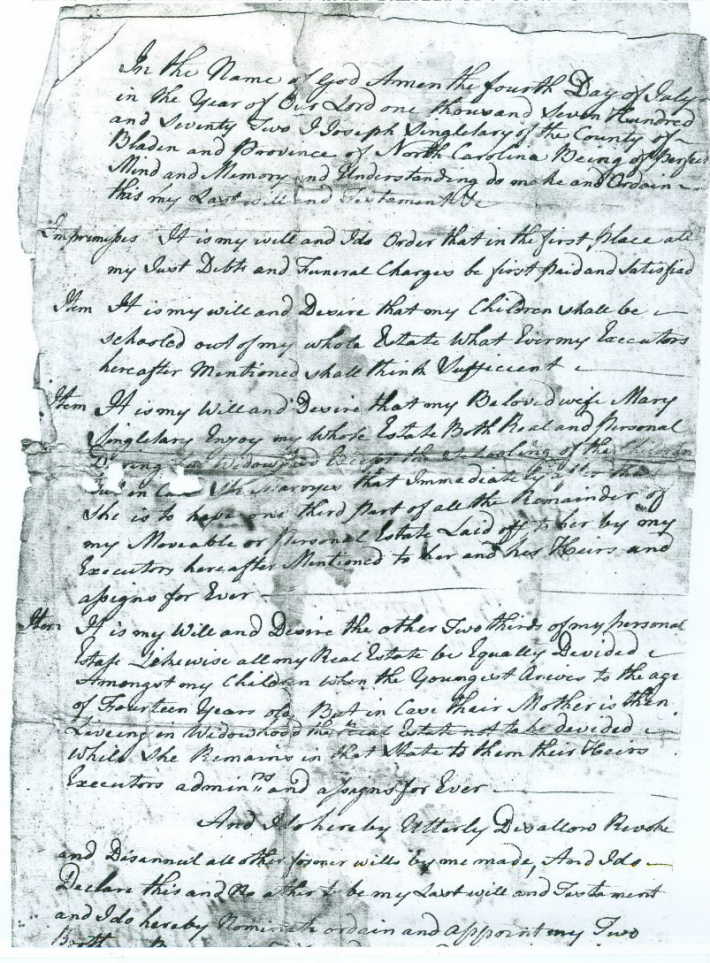 In the Name of God Amen the fourth Day of July
in the Year of Our Lord one thousand Seven Hundred
and Seventy Two I Joseph Singletary of the County of
Bladen and Province of North Carolina Being of Perfect
Mind and Memory and Understanding do make and Ordain
this my Last will and Testament &c
Imprimisses It is my will and I do Order that in the first place all
my Just Debts and Funeral Charges be first paid and Satisfied
Item It is my will and Desire that my Children shall be
schooled out of my whole Estate What Ever my Executors
hereafter Mentioned shall think Sufficient
Item It is my Will and Desire that my Beloved wife Mary
Singletary Enjoy my Whole Estate Both Real and personal
During Widowhood Except the schooling of the Children
in Case She marryes that Immediately after that
She is to have one third part of all the Remainder of
my Moveable or personal Estate Laid off to her by my
Executors hereafter Mentioned to her and her Heirs and
assigns for Ever
Item It is my Will and Desire the other Two thirds of my personal
Estate Likewise all my Real Estate be Equally Devided
Amongst my Children when the Youngest Arives to the age
of Fourteen Years old But in Case their Mother is then
Liveing in Widowhood the Real Estate not to be devided
while She Remains in that State to them their Heirs
Executors adminrs and assigns for Ever
And I do hereby Utterly Disallow Revoke
and Disannul all other former wills by me made, And I do
Declare this and No other to be my Last will and Testament
and I do hereby Nominate ordain and appoint my Two